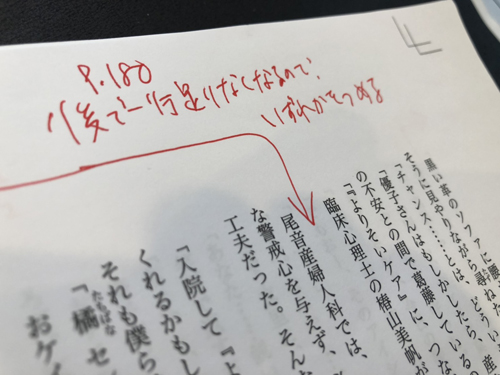 P.180
後で一行足りなくなるので、
いずれかをつめる
黒い革のソファに
そうに見やりながら
「チャンス……とは、どう
「優子さんはもしかしたら、産
の不安との間で葛藤している
『よりそいケア』に、つな
臨床心理士の椿山美帆が
尾音産婦人科では、
な警戒心を与えず、そんな
工夫だった。
「入院して『よ
くれるかもし
それも僕ら
「橘セ
たちばな
おケイ